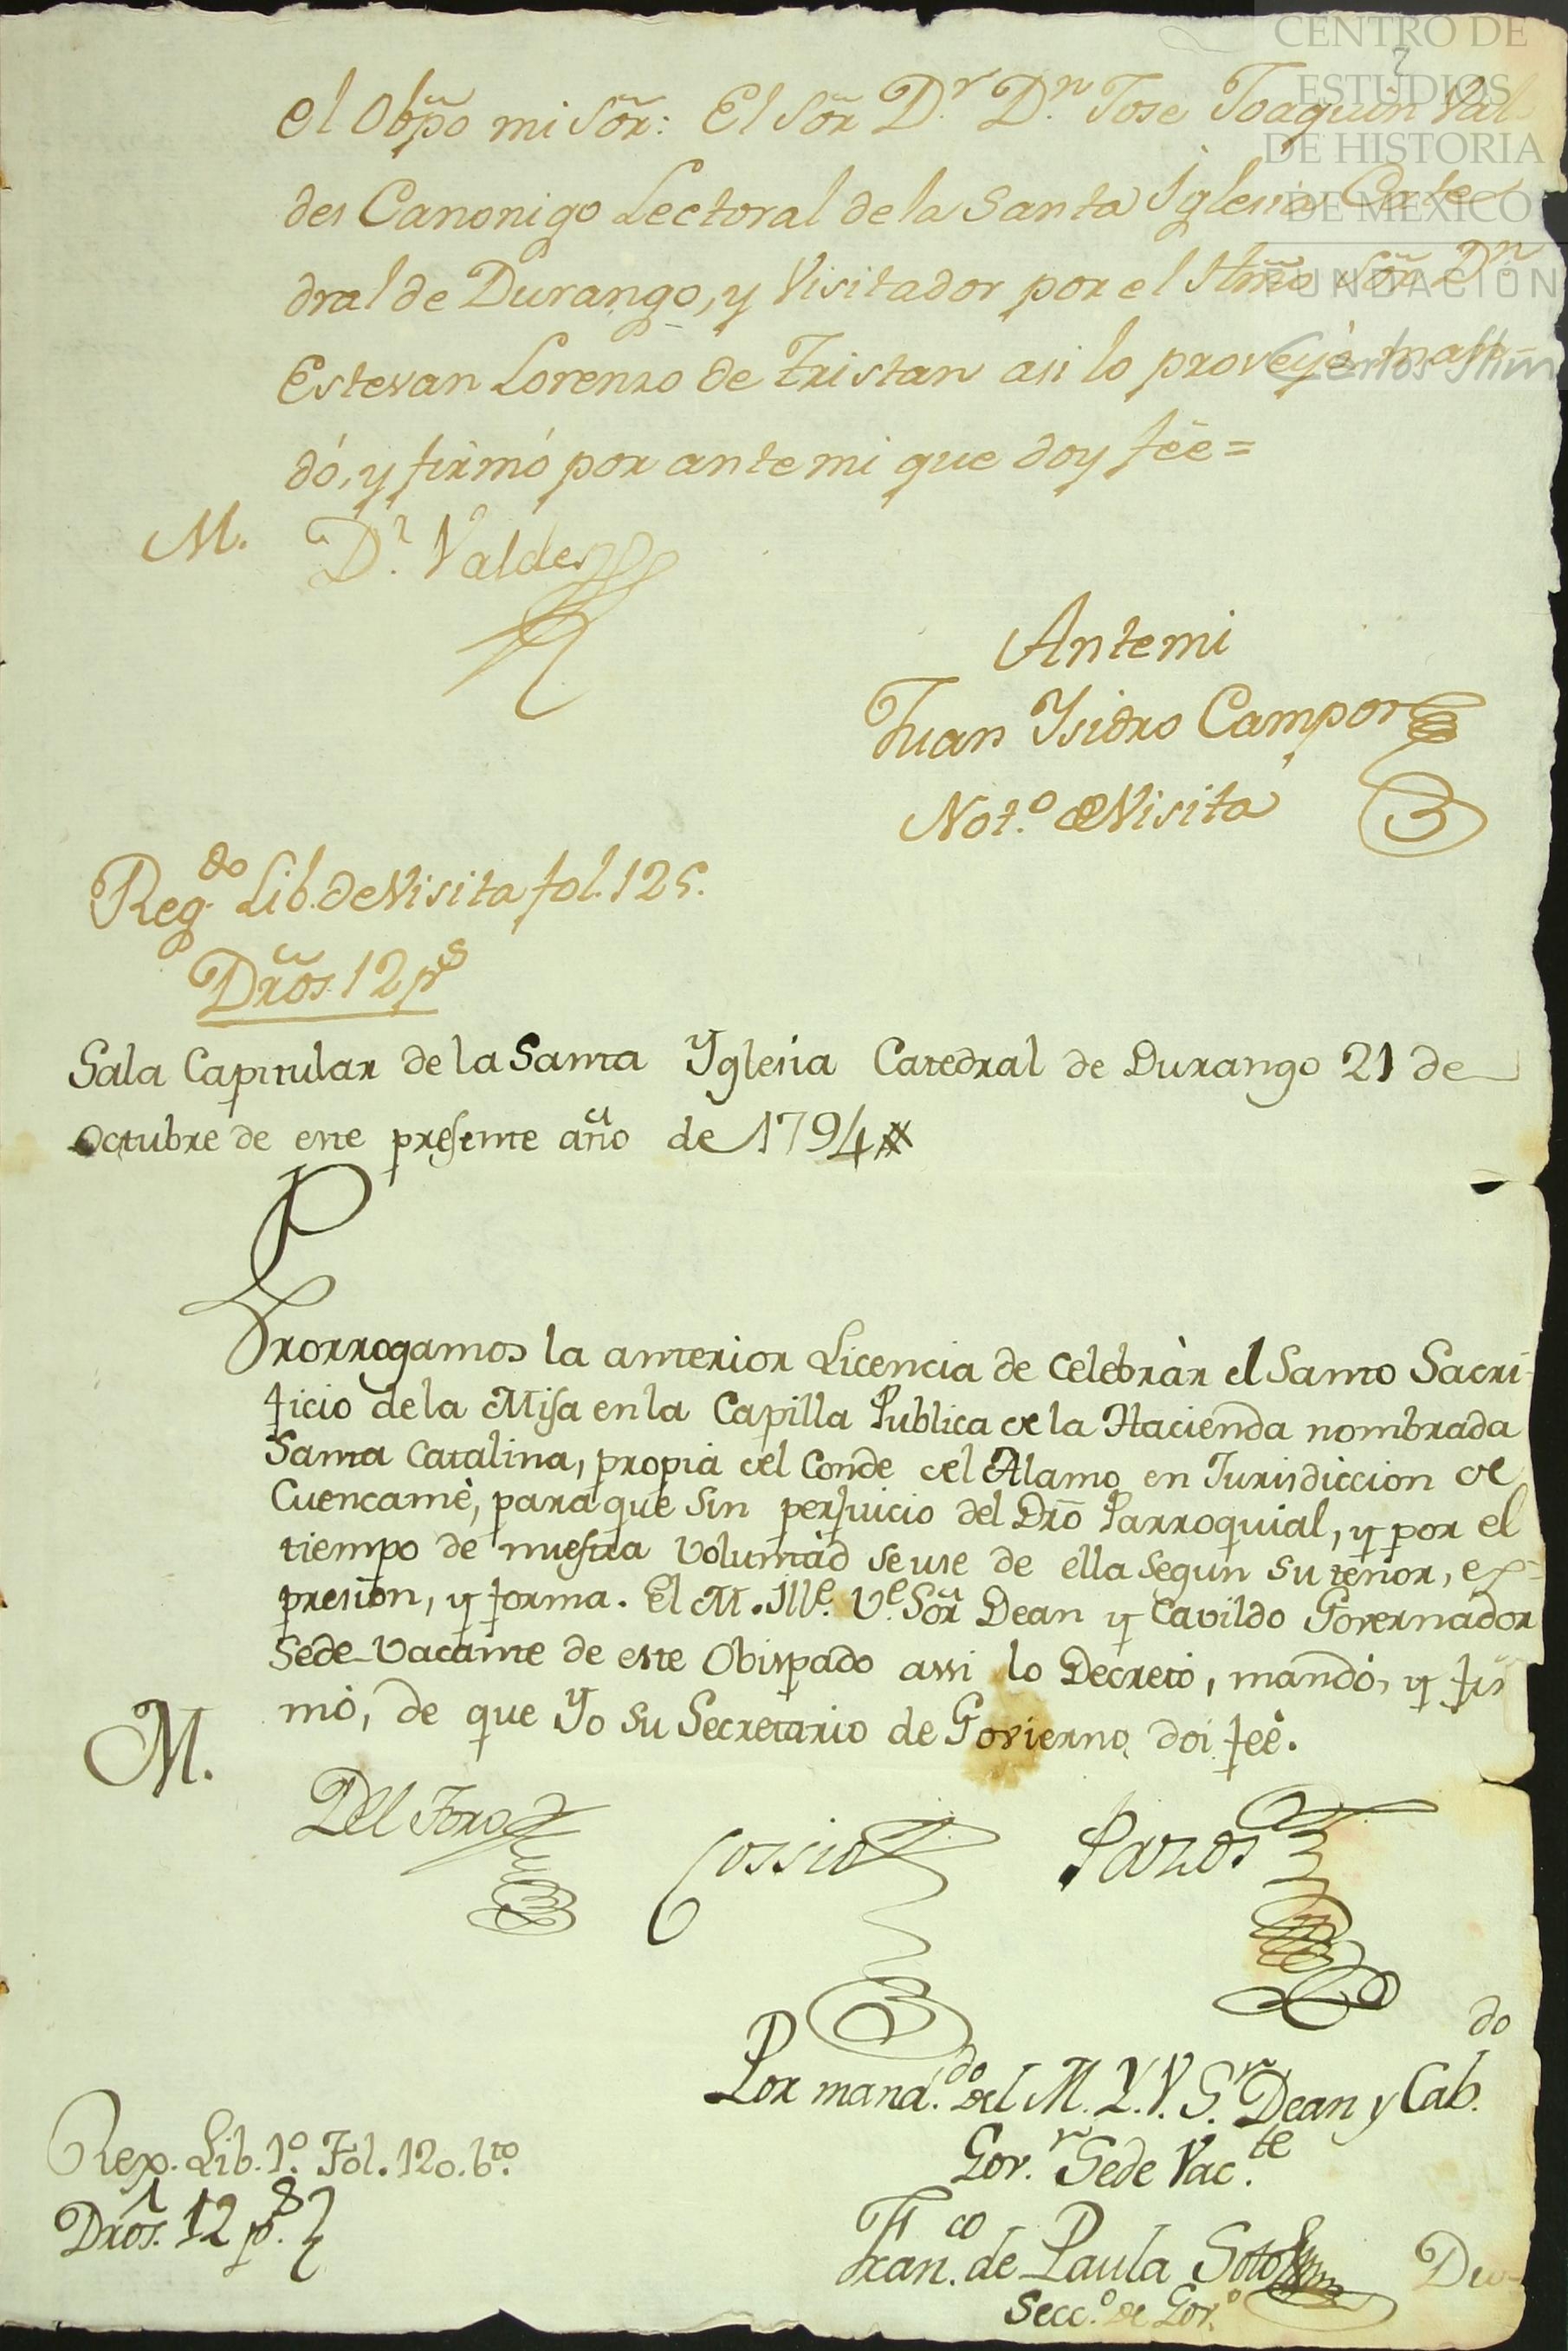 CENTRO DE
ESTUDIOS
DE HISTORIA
DE MEXICO
FUNDACIÓN
el Obpõ mi Sõr: El Sõr Dr. Dn. Jose Joaquin Val
des Canonigo Lectoral de la Santa Iglesia Cate
dral de Durango, y Visitador por el Ilmõ Sõr Dn
Estevan Lorenzo de Tristan asi lo proveyò man-
dó, y firmó por antemi que doy fée=
M. Dr. Valdes
Antemi
Juan Ysidro Campos
Not.o de Visita
Reg.do Lib. de Visita fol. 125.
Drõs. 12 ps
Sala Capitular de la Santa Yglesia Catedral de Durango 21 de
Octubre de este presente año de 1794
Prorrogamos la anterior Licencia de celebràr el Santo Sacri-
ficio de la Misa en la Capilla Publica de la Hacienda nombrada
Santa Catalina, propia del Conde del Alamo en Jurisdiccion de
Cuencamè, para que sin perjuicio del Drõ Parroquial, y por el
tiempo de nuestra voluntad se use de ella segun su tenor, ex-
presion, y forma. El M. Ille. Ve. Sõr Dean y Cavildo Governador
Sede-Vacante de este Obispado assi lo Decretó, mandó, y fir
mó, de que Yo su Secretario de Govierno doi feè.
M.
Del Toro Cossio Pazos
Por mand.do del M. Y. V. S.r Dean y Cab.do
Gov.r Sede Vac.te
Fran.co de Paula Soto
Secc.o de Gov.o
Rex. Lib. 1.o Fol. 120. bto.
Drõs. 12 ps.
Du-